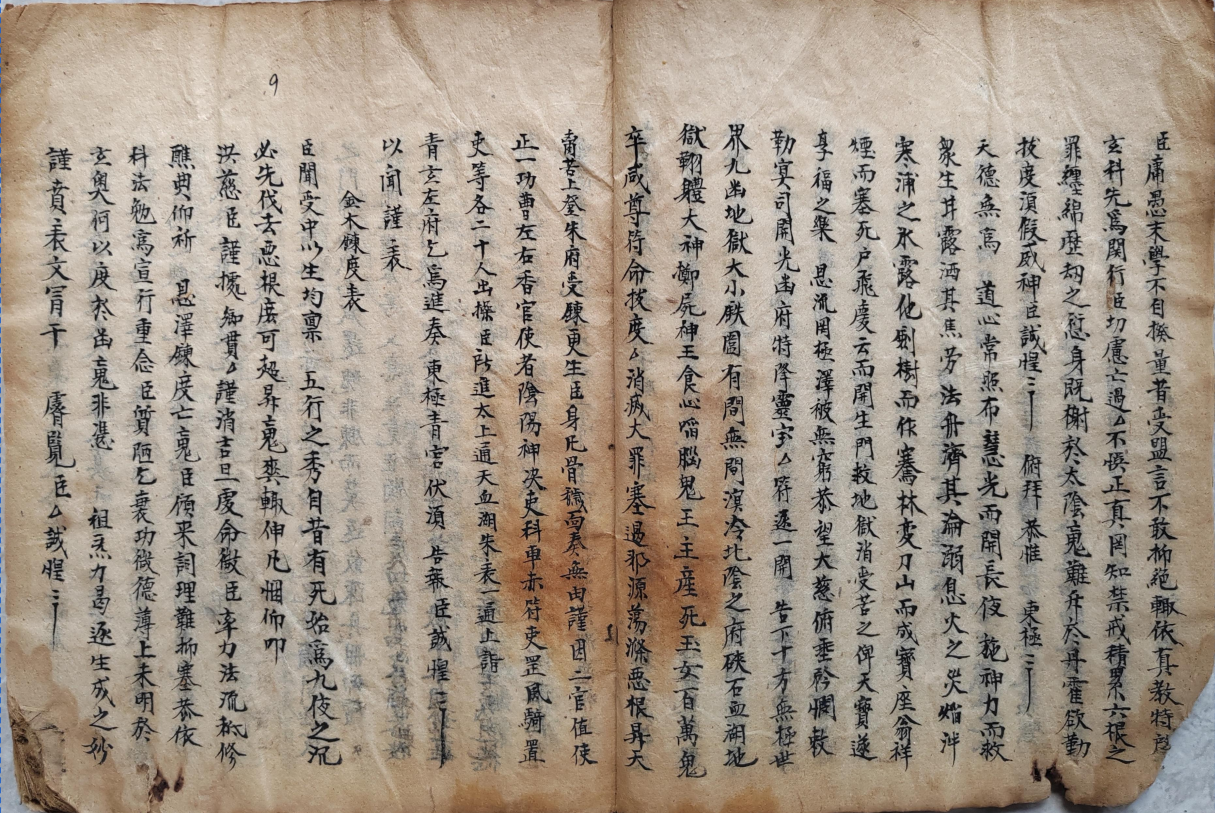 臣庸愚末學不自揆量昔受盟言不敢抑絕輒依真教特啓
玄科先爲関行臣切慮亡過厶不慎正真罔知禁戒積累六根之
罪纏綿歷刼之愆身既榭於太陰䰟難升於丹霍欲勤
拔度須假威神臣誠惶〻 俯拜恭惟 東極〻
天德無爲 道心常照布慧光而開長夜 施神力而救
衆生甘露洒其焦劳法舟濟其淪溺息火之災焰泮
寒浦之氷露化劍樹而作騫林变刀山而成寶座翁祥
煙而塞死户飛慶云而開生門救地獄消受苦之俾天寶遂
享福之樂 恩流罔極澤被無窮恭望大慈俯垂矜憫敕
勒冥司開光幽府特降靈宝厶符逐一開 告下十方無極世
界九幽地獄大小鉄圍有間無間溟泠北陰之府硤石血湖地
獄翻體大神擲屍神王食心啗腦鬼王主產死玉女百萬鬼
卒咸尊符命拔度厶消滅大罪塞過邪源蕩滌悪根昇天
甯苦上登朱府受鍊更生臣身凡骨穢啇奏無由謹因二官值使
正一功曹左右香官使者陰陽神决吏科車赤符吏罡風騎置
吏等各二十人出操臣所進太上通天血湖朱表一通上詣
青玄左府乞爲進奏 東極青宫伏須 告報臣誠惶〻
以聞謹表
金木鍊度表
臣聞受中以生均禀 五行之秀自昔有死始爲九伎之沉
必先伐去悪根庶可超昇䰟爽輒伸凡悃仰叩
洪慈臣謹據知貫厶謹消吉旦虔命㣲臣率力法流祗修
醮典仰祈 恩澤鍊度亡䰟臣領来詞理難抑塞恭依
科法勉爲宣行重念臣質陋乞衰功㣲德薄上未明於
玄奥何以度於幽䰟非慿 祖炁力曷逐生成之妙
謹賁表文冐干 睿覧臣厶誠惶〻
9